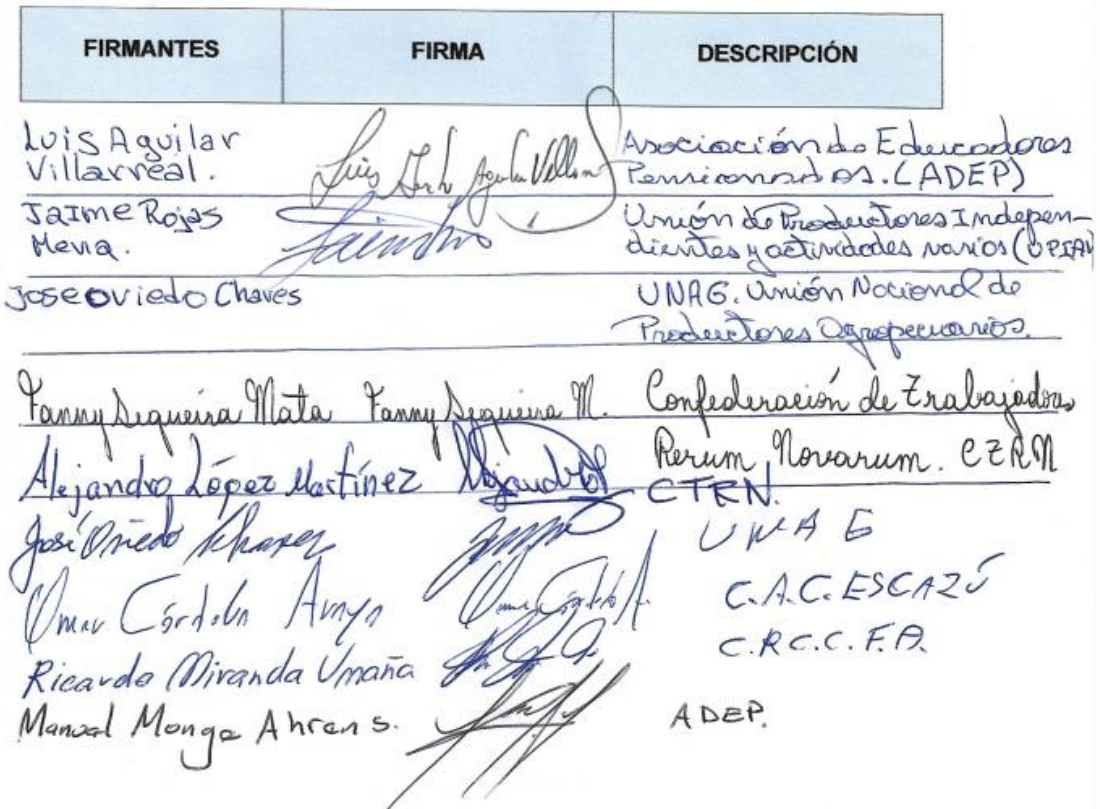 FIRMANTES FIRMA DESCRIPCIÓN
Luis Aguilar Asociación de Educadores
Villarreal. Luis Aguilar Pensionados. (ADEP)
Jaime Rojas Unión de Productores Indepen-
Mena. dientes y actividades varios (UPIAV
Jose Oviedo Chaves UNAG. Unión Nacional de
Productores Agropecuarios.
Fanny Sequeira Mata Fanny Sequeira M. Confederación de Trabajadores
Rerum Novarum. CTRN
Alejandro López Martínez Alejandro CTRN.
José Oviedo Chaves UNAG
Omar Córdoba Araya Omar Córdoba A. C.A.C. ESCAZÚ
Ricardo Miranda Umaña C.R.C.C.F.A.
Manuel Monge Ahrens. ADEP.